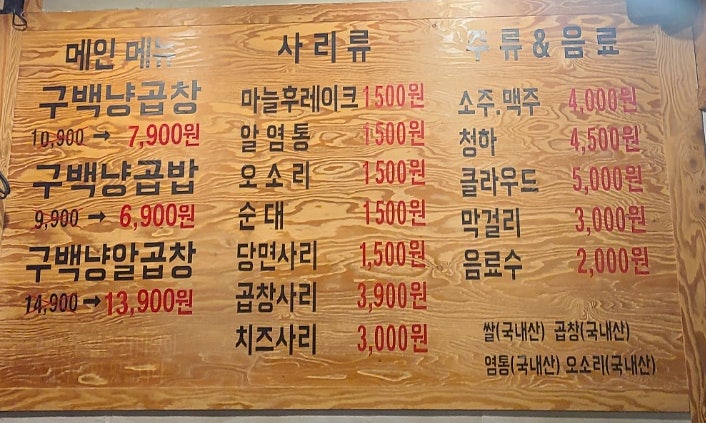 메인 메뉴
구백냥곱창
10,900 → 7,900원
구백냥곱밥
9,900 → 6,900원
구백냥알곱창
14,900 → 13,900원
사리류
마늘후레이크 1500원
알염통 1500원
오소리 1500원
순대 1500원
당면사리 1,500원
곱창사리 3,900원
치즈사리 3,000원
주류&음료
소주.맥주 4,000원
청하 4,500원
클라우드 5,000원
막걸리 3,000원
음료수 2,000원
쌀(국내산) 곱창(국내산)
염통(국내산) 오소리(국내산)